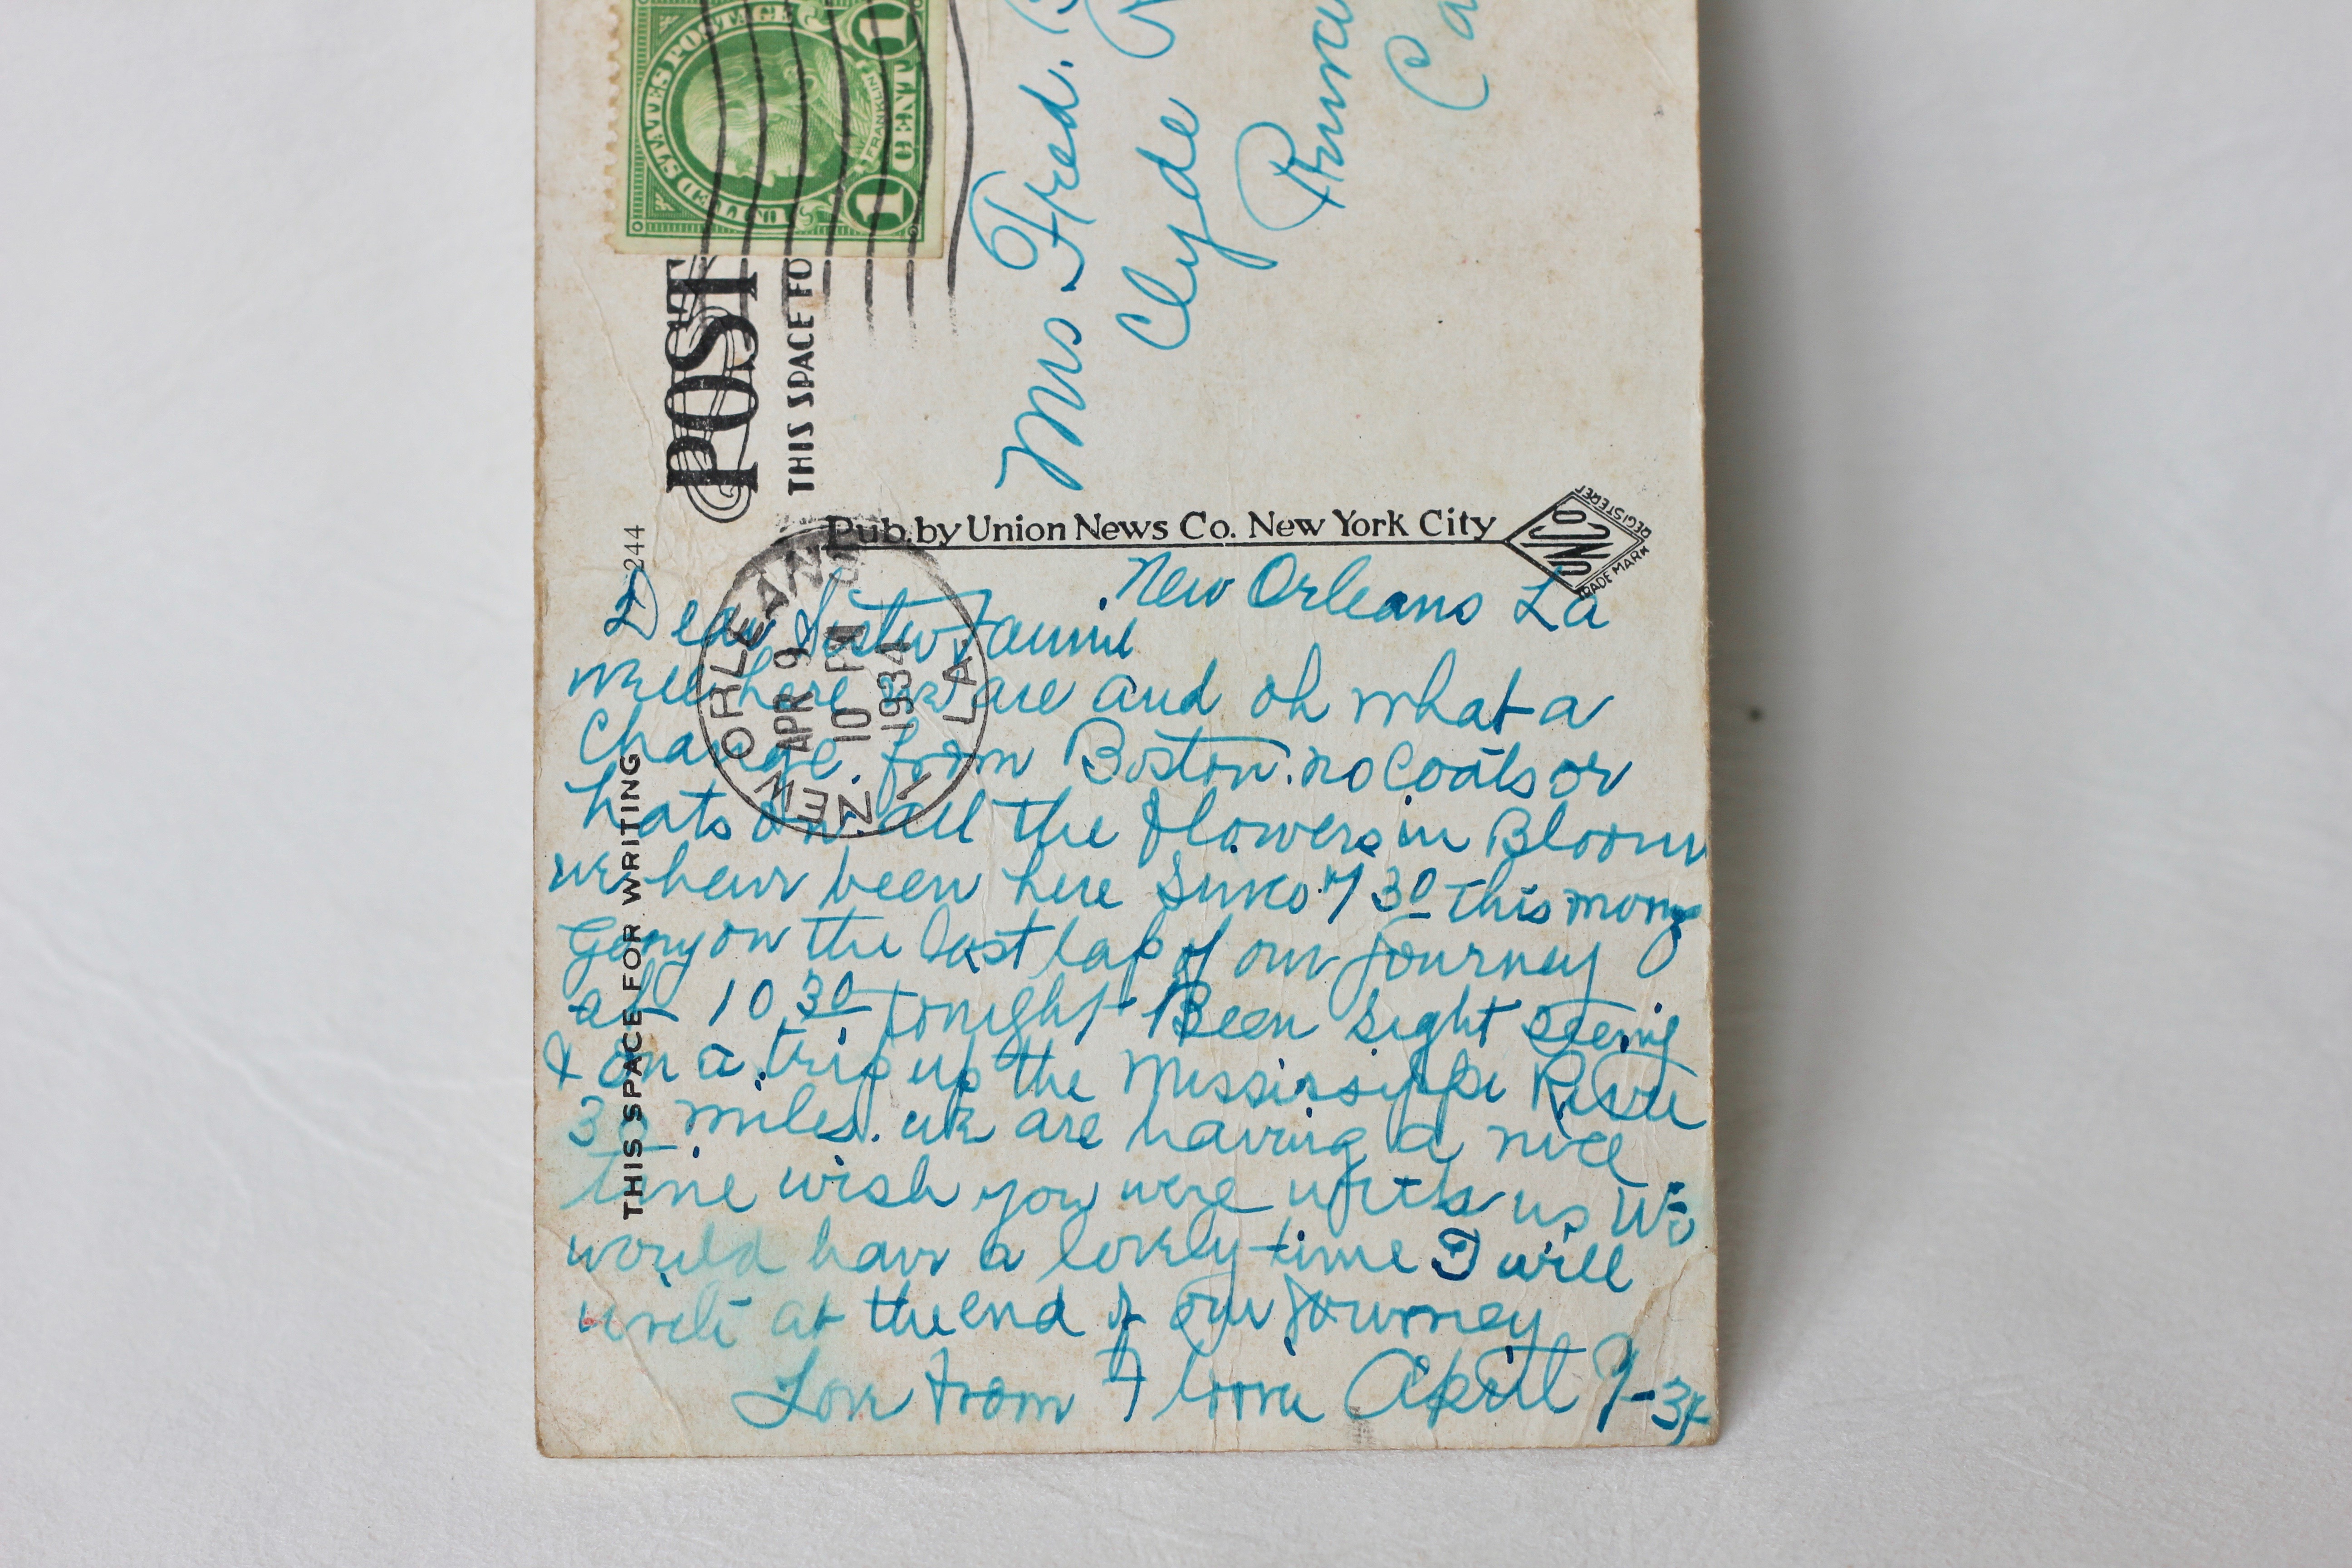 UNITED STATES POSTAGE
FRANKLIN
1 CENT 1
POST
THIS SPACE FO
Mrs Fred.
Clyde
Ca
244
Pub. by Union News Co. New York City
UNCO
REGISTERED
TRADE MARK
NEW ORLEANS
LA
APR 9
10 PM
1934
THIS SPACE FOR WRITING
New Orleans La
Dear Sister Fannie
Well here we are and oh what a
Change. from Boston. no Coats or
hats on. all the flowers in Bloom
we have been here Since 7 30 this morng
Going on the last lap of our journey
at 10 30 tonight Been sight seeing
& on a trip up the Mississippi River
30 miles. we are having a nice
time wish you were with us We
would have a lovely time I will
write at the end of our journey
Love from Flora April 9-34